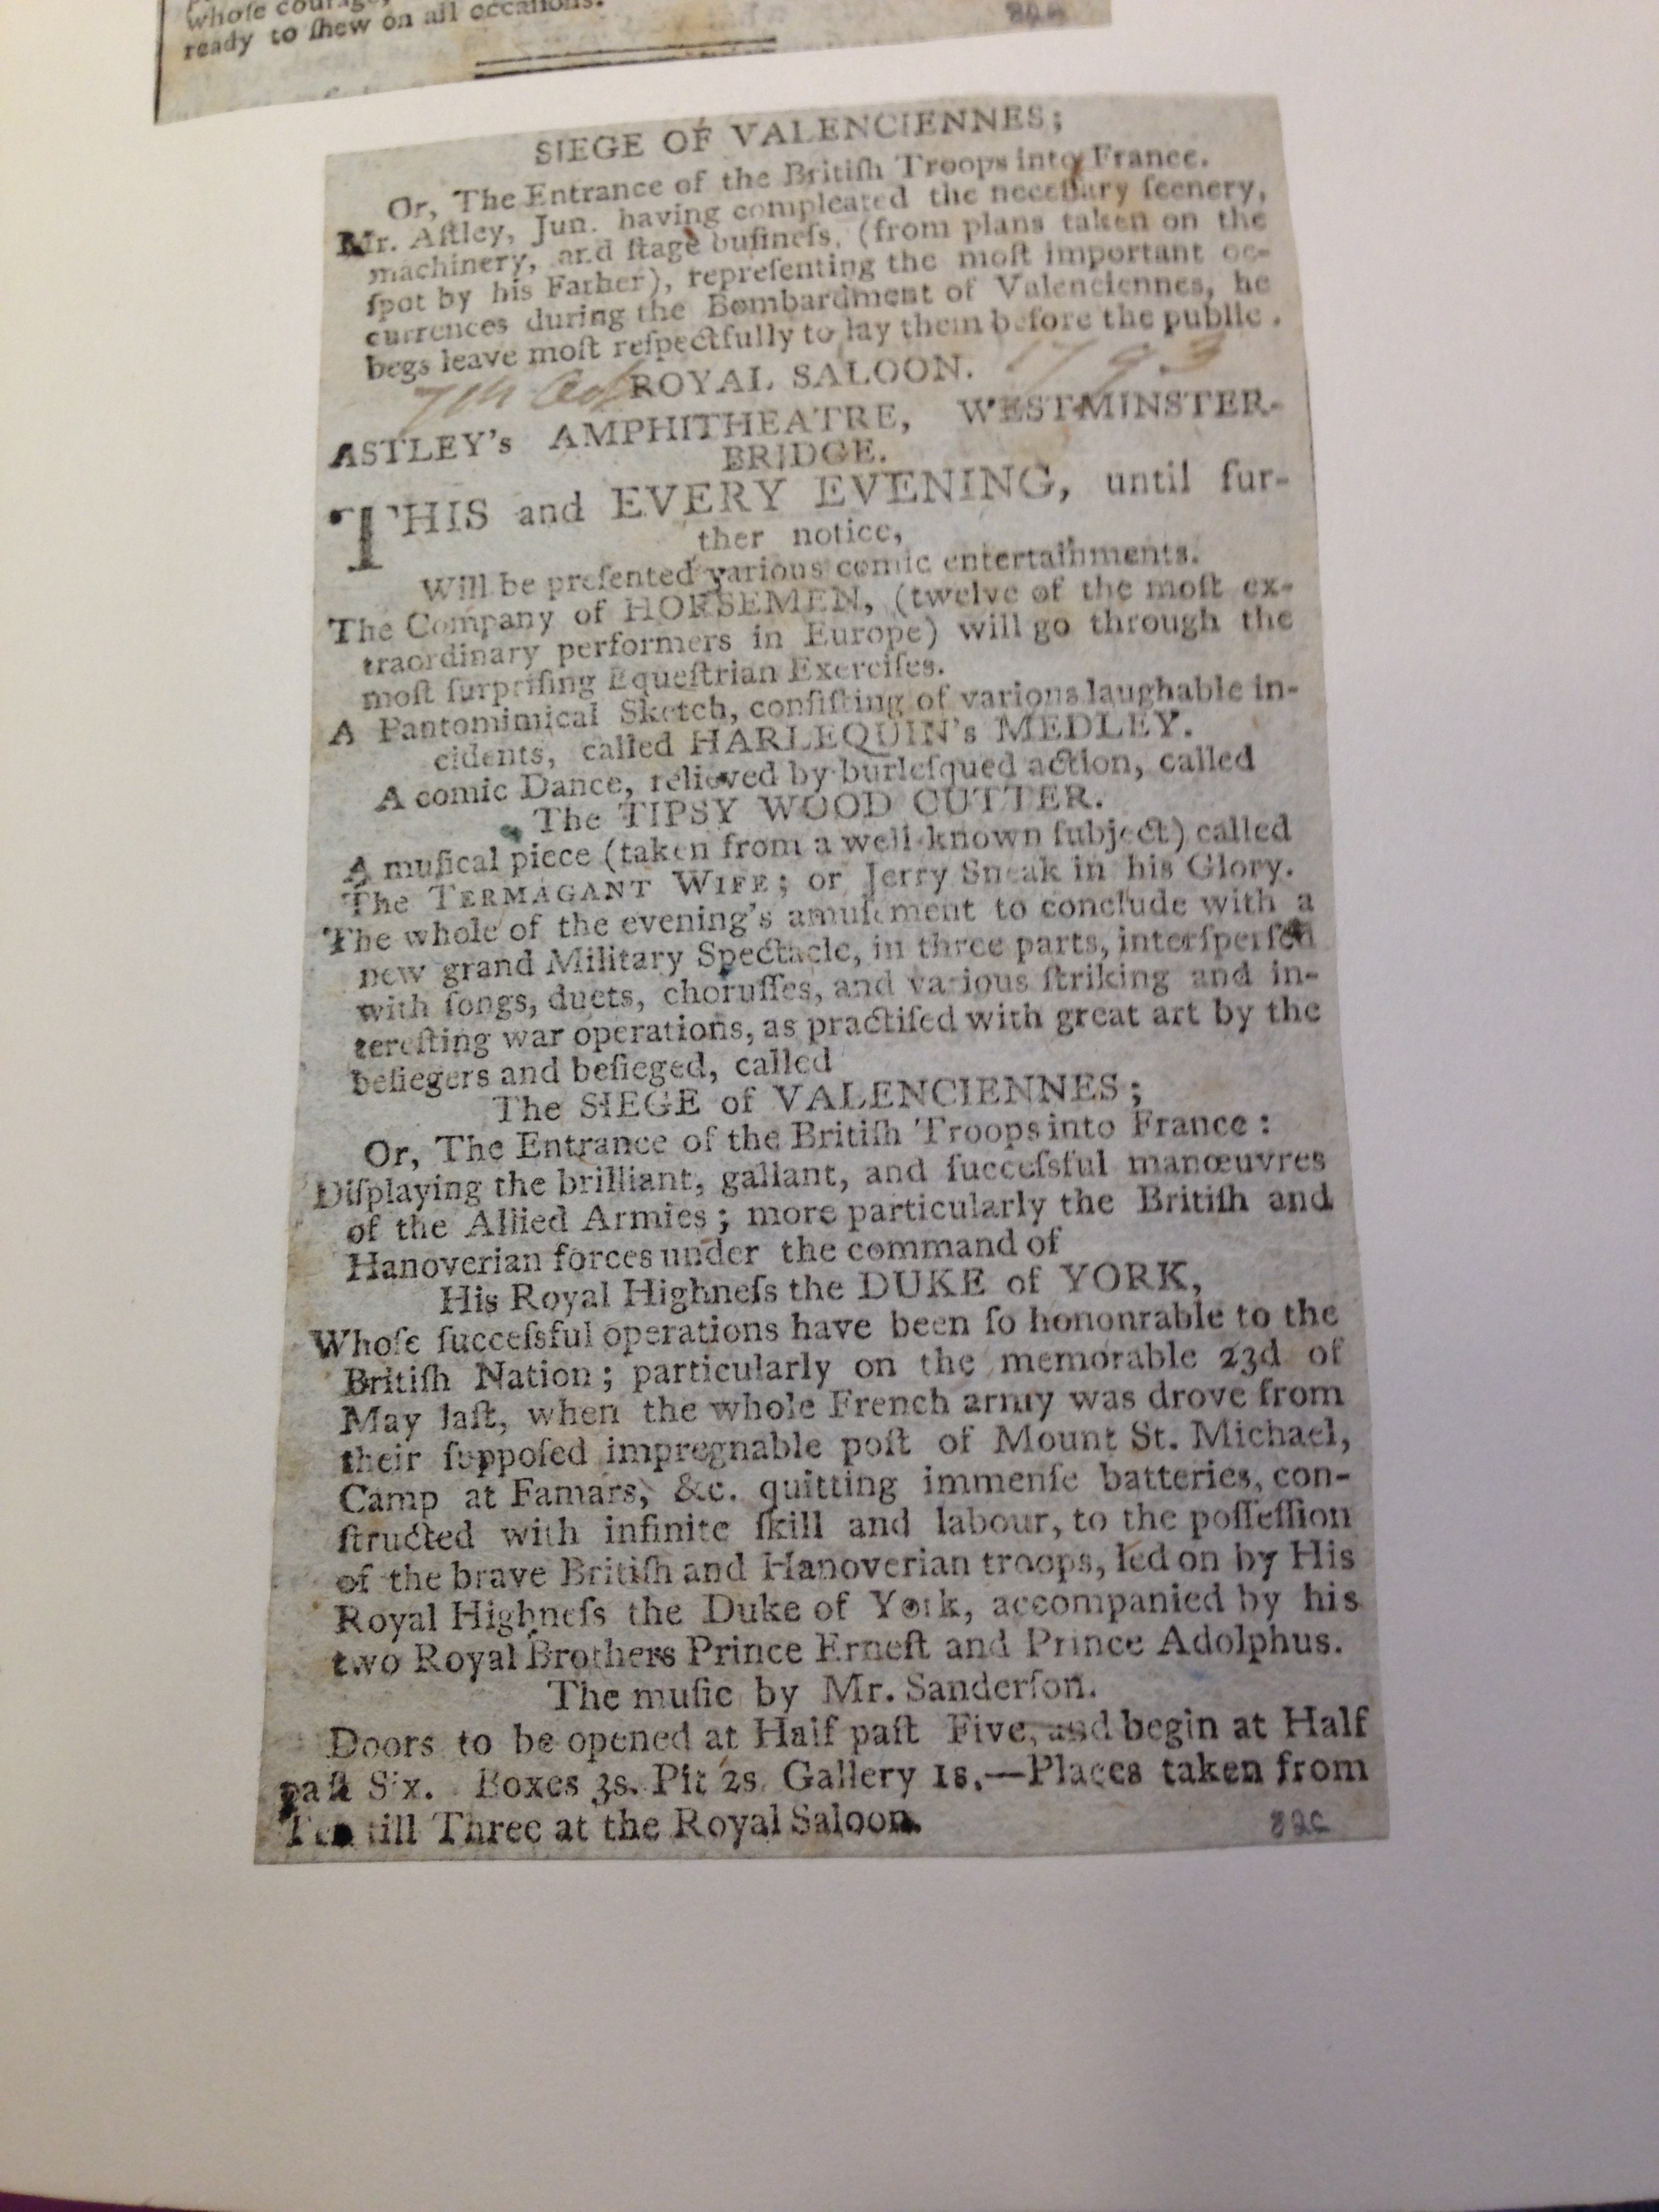 whoſe courage,
ready to ſhew on all occaſions.
SIEGE OF VALENCIENNES;
Or, The Entrance of the Britiſh Troops into France.
Mr. Aſtley, Jun. having compleated the neceſſary ſcenery,
machinery, and ſtage buſineſs, (from plans taken on the
ſpot by his Father), repreſenting the moſt important oc-
currences during the Bombardment of Valenciennes, he
begs leave moſt reſpectfully to lay them before the public.
7th Oct 1793
ROYAL SALOON.
ASTLEY's AMPHITHEATRE, WESTMINSTER-
BRIDGE.
THIS and EVERY EVENING, until fur-
ther notice,
Will be preſented various comic entertainments.
The Company of HORSEMEN, (twelve of the moſt ex-
traordinary performers in Europe) will go through the
moſt ſurpriſing Equeſtrian Exerciſes.
A Pantomimical Sketch, conſiſting of various laughable in-
cidents, called HARLEQUIN's MEDLEY.
A comic Dance, relieved by burleſqued action, called
The TIPSY WOOD CUTTER.
A muſical piece (taken from a well-known ſubject) called
The TERMAGANT WIFE; or Jerry Sneak in his Glory.
The whole of the evening's amuſement to conclude with a
new grand Military Spectacle, in three parts, interſperſed
with ſongs, duets, choruſſes, and various ſtriking and in-
tereſting war operations, as practiſed with great art by the
beſiegers and beſieged, called
The SIEGE of VALENCIENNES;
Or, The Entrance of the Britiſh Troops into France:
Diſplaying the brilliant, gallant, and ſucceſsful manœuvres
of the Allied Armies; more particularly the Britiſh and
Hanoverian forces under the command of
His Royal Highneſs the DUKE of YORK,
Whoſe ſucceſsful operations have been ſo hononrable to the
Britiſh Nation; particularly on the memorable 23d of
May laſt, when the whole French army was drove from
their ſuppoſed impregnable poſt of Mount St. Michael,
Camp at Famars, &c. quitting immenſe batteries, con-
ſtructed with infinite ſkill and labour, to the poſſeſſion
of the brave Britiſh and Hanoverian troops, led on by His
Royal Highneſs the Duke of York, accompanied by his
two Royal Brothers Prince Erneſt and Prince Adolphus.
The muſic by Mr. Sanderſon.
Doors to be opened at Half paſt Five, and begin at Half
paſt Six. Boxes 3s. Pit 2s. Gallery 1s.—Places taken from
Ten till Three at the Royal Saloon.
82C